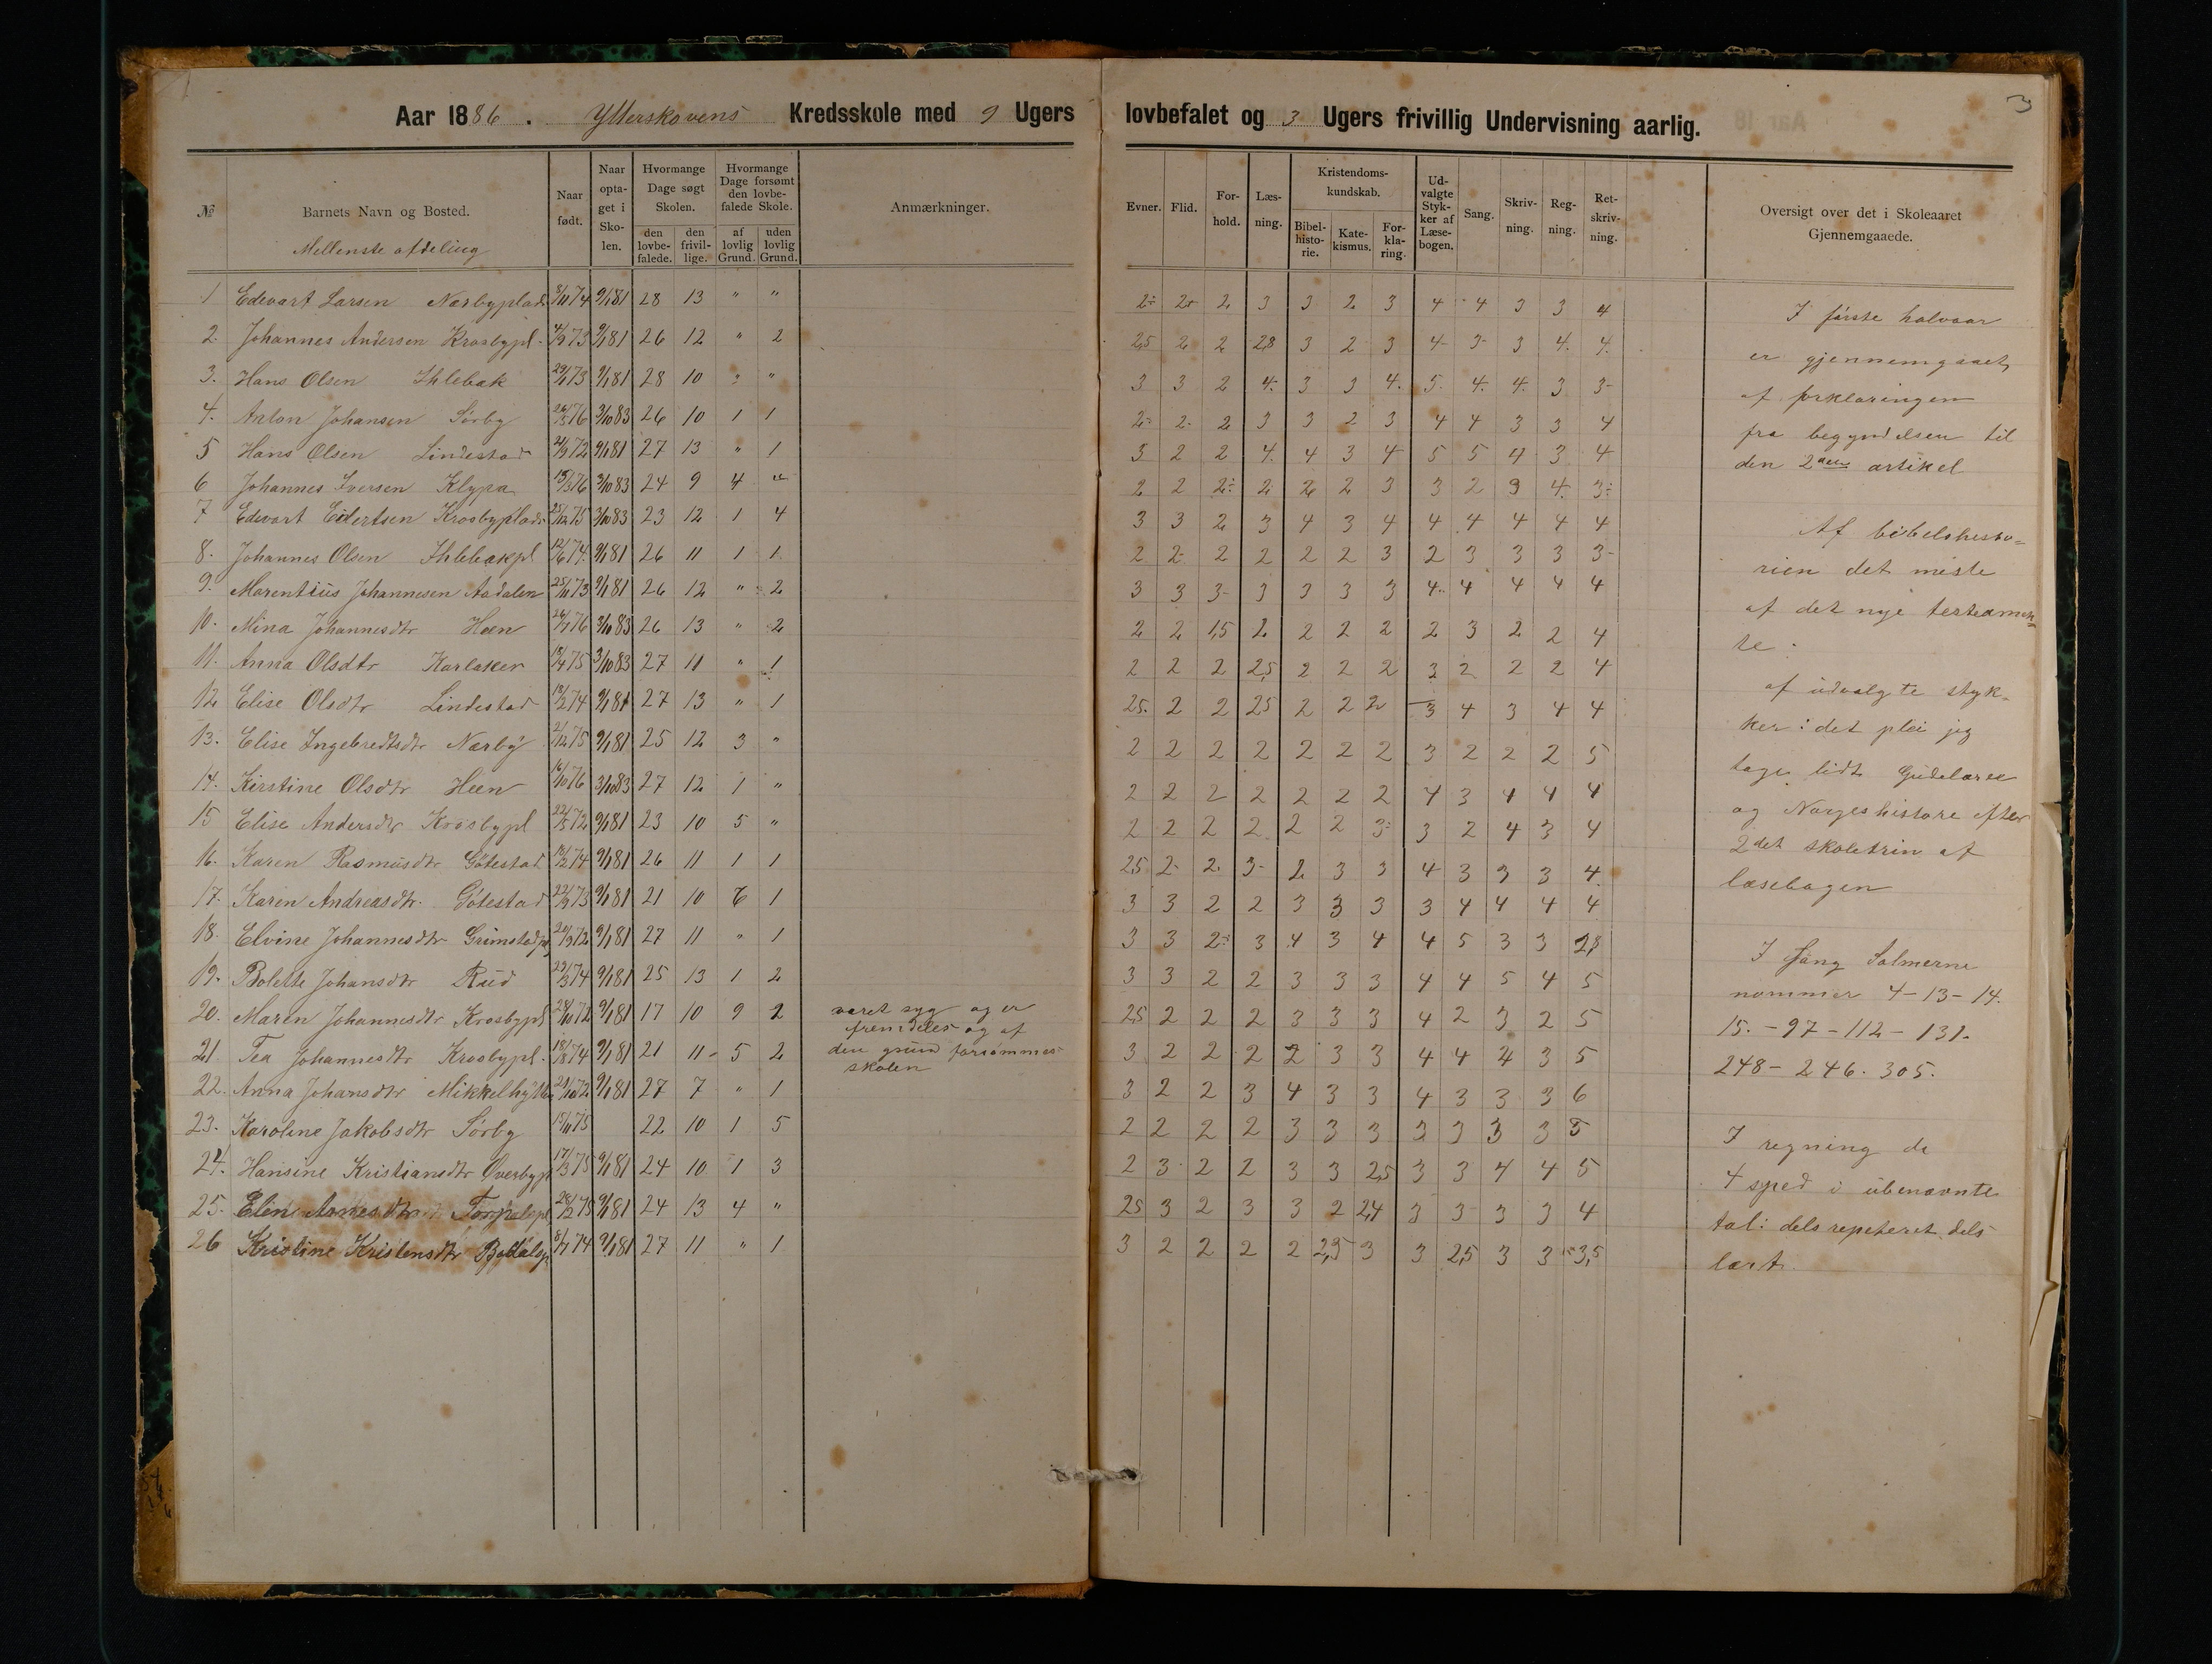 Aar 1886. Ytterskovens Kredsskole med 9 Ugers lovbefalet og 3 Ugers frivillig Undervisning aarlig.
3
№ | Barnets Navn og Bosted. | Naar født. | Naar optaget i Skolen. | Hvormange Dage søgt Skolen. den lovbefalede. | den frivillige. | Hvormange Dage forsømt den lovbefalede Skole. af lovlig Grund. | uden lovlig Grund. | Anmærkninger. | Evner. | Flid. | Forhold. | Læsning. | Kristendomskundskab. Bibelhistorie. | Katekismus. | Forklaring. | Udvalgte Stykker af Læsebogen. | Sang. | Skrivning. | Regning. | Retskrivning. | Oversigt over det i Skoleaaret Gjennemgaaede.
Mellenste afdeling
1 Edevart Larsen Nærbyplads 8/11 74 9/1 81 28 13 " " 2÷ 2- 2 3 3 2 3 4 4 3 3 4
2. Johannes Andersen Krosbypl. 4/9 73 9/1 81 26 12 " 2 2,5 2 2 2,8 3 2 3 4 3 3 4. 4.
3. Hans Olsen Ihlebæk 9/1 81 28 10 " " 3 3 2 4. 3 3 4. 5. 4. 4. 3 3-
4. Anton Johansen Sørby 3/10 83 26 10 1 1 2- 2. 2 3 3 2 3 4 4 3 3 4
5 Hans Olsen Lindestad 9/1 81 27 13 " 1 3 2 2 4. 4 3 4 5 5 4 3 4
6 Johannes Iversen Klypa 3/10 83 24 9 4 " 2 2 2÷ 2 2 2 3 3 2 3 4. 3÷
7 Edevart Eilertsen Krosbyplads 25/12 75 3/10 83 23 12 1 4 3 3 2 3 4 3 4 4 4 4 4 4
8. Johannes Olsen Ihlebækpl 12/6 74. 9/1 81 26 11 1 1 2 2- 2 2 2 2 3 2 3 3 3 3-
9. Marentius Johannesen Aadalen 25/11 73 9/1 81 26 12 " 2 3 3 3- 3 3 3 3 4. 4 4 4 4
10. Mina Johannesdtr Heen 3/10 83 26 13 " 2 2 2 1,5 2 2 2 2 2 3 2 2 4
11. Anna Olsdtr Karlaker 3/10 83 27 11 " 1 2 2 2 2,5 2 2 2 3 2 2 2 4
12 Elise Olsdtr Lindestad 9/1 81 27 13 " 1 25. 2 2 25 2 2 2 3 4 3 4 4
13. Elise Ingebredtsdtr Nærby 9/1 81 25 12 3 " 2 2 2 2 2 2 2 3 2 2 2 5
14. Kirstine Olsdtr Heen 16/10 76 3/10 83 27 12 1 " 2 2 2 2 2 2 2 4 3 4 4 4
15 Elise Andersdtr Krosbypl 9/1 81 23 10 5 " 2 2 2 2 2 2 3÷ 3 2 4 3 4
16. Karen Rasmusdtr Götestad 9/1 81 26 11 1 1 2,5 2- 2. 3- 2 3 3 4 3 3 3 4.
17. Karen Andreasdtr. Götestad 22/9 73 9/1 81 21 10 6 1 3 3 2 2 3 3 3 3 4 4 4 4
18. Elvine Johannesdtr Grimstadpl 9/1 81 27 11 " 1 3 3 2÷ 3 4 3 4 4 5 3 3
19. Bolette Johansdtr Rud 9/1 81 25 13 1 2 3 3 2 2 3 3 3 4 4 5 4 5
20. Maren Johannesdtr Krosbypl 28/10 72 9/1 81 17 10 9 2 været syg og er 2,5 2 2 2 3 3 3 4 2 3 2 5
fremdeles og af
21 Tea Johannesdtr Krosbypl. 18/8 74 9/1 81 21 11 5 2 den grund forsømmes 3 2 2 2 2 3 3 4 4 4 3 5
skolen
22. Anna Johansdtr 9/1 81 27 7 " 1 3 2 2 3 4 3 3 4 3 3 3 6
23. Karoline Jakobsdtr Sörby 15/11 75 22 10 1 5 2 2 2 2 3 3 3 3 3 3 3 5
24. Hansine Kristiansdtr Överbypl 17/3 75 9/1 81 24 10 1 3 2 3 2 2 3 3 2,5 3 3 4 4 5
25. Elin 28/12 75 9/1 81 24 13 4 " 25 3 2 3 3 2 2,4 3 3 3 3 4
26 Kristine Kristensdtr 8/7 74 9/1 81 27 11 " 1 3 2 2 2 2 2,5 3 3 2,5 3 3 3,5
I første halvaar
er gjennemgaaet
af forklaringen
fra begyndelsen til
den 2den artikel
Af bibelshesto=
rien det meste
af det nye testeamen=
te.
af udvalgte styk-
ker: det plei jeg
tage lidt Gudelære
og Norgeshistore efter
2det skoletrin af
læsebogen
I sang Salmerne
nommer 4-13-14.
15.-97-112-131.
248-246.305.
I regning de
4 sped i ubenævnte
tal: dels repeteret dels
lært.